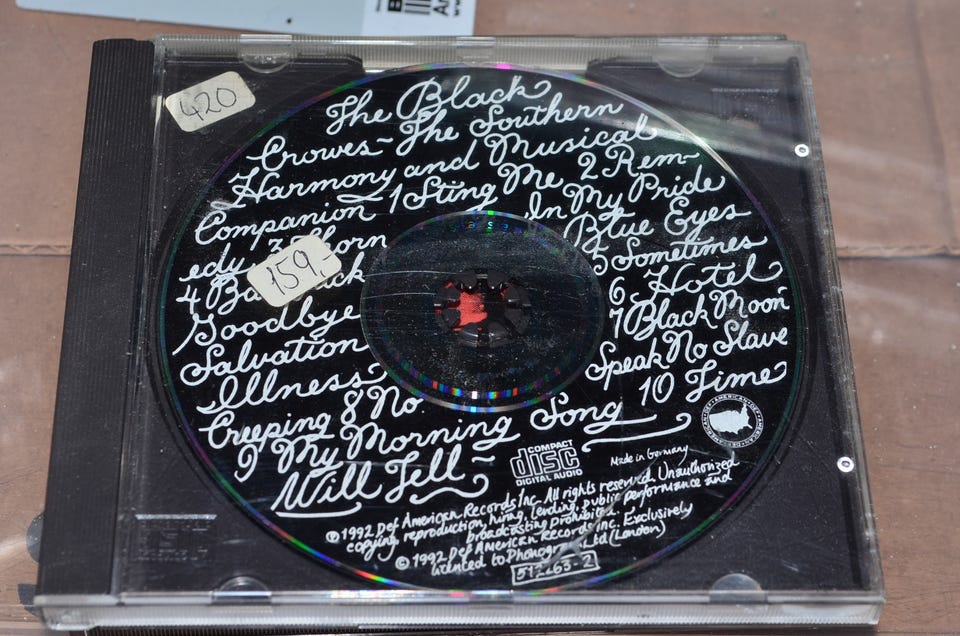 420
The Black
Crowes ~ The Southern
Harmony and Musical
Companion 1 Sting Me 2 Rem-
edy 3 Thorn In My Pride
159,-
4 Ba ck Blue Eyes
5 Sometimes
Goodbye 6 Hotel
Salvation 7 Black Moon
Illness
Creeping 8 No Speak No Slave
9 My Morning Song 10 Time
Will Tell ~
COMPACT
disc
DIGITAL AUDIO
Made in Germany
DEF AMERICAN • DEF AMERICAN
℗ 1992 Def American Records Inc. All rights reserved. Unauthorized
copying, reproduction, hiring, lending, public performance and
broadcasting prohibited.
© 1992 Def American Records Inc. Exclusively
licenced to Phonogram Ltd (London)
512263-2